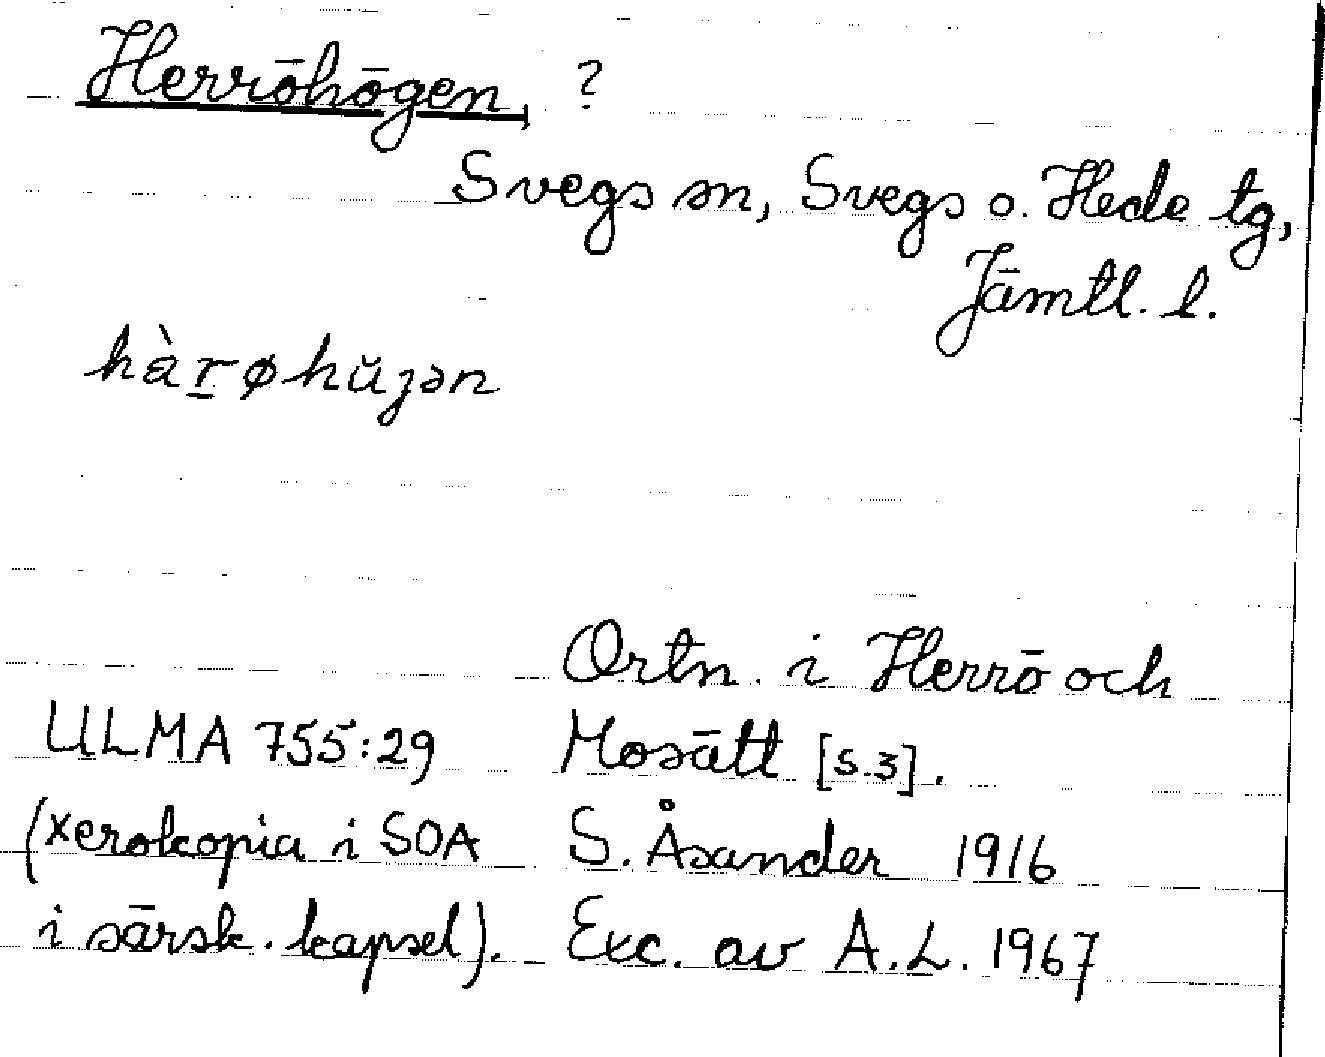 Herröhögen, ?
Svegs sn, Svegs o. Hede tg,
Jämtl. l.
hàr̲øhŭʒən
Ortn. i Herrö och
ULMA 755:29 Mosätt [s.3].
(xerokopia i SOA S. Åsander 1916
i särsk. kapsel). Exc. av A.L. 1967